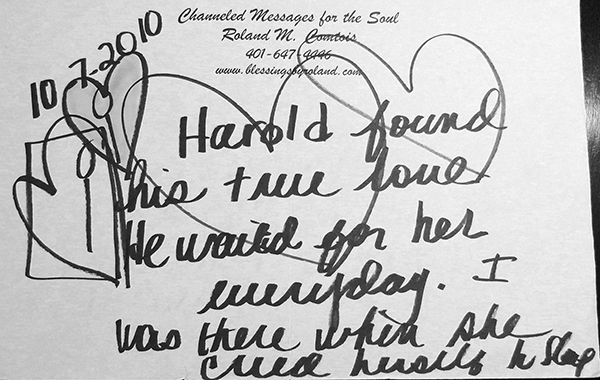 Channeled Messages for the Soul
Roland M. Comtois
401-647-4446
www.blessingsbyroland.com
10-7-2010
Harold found
his true love
He waited for her
everyday. I
was there when she
cried herself to sleep